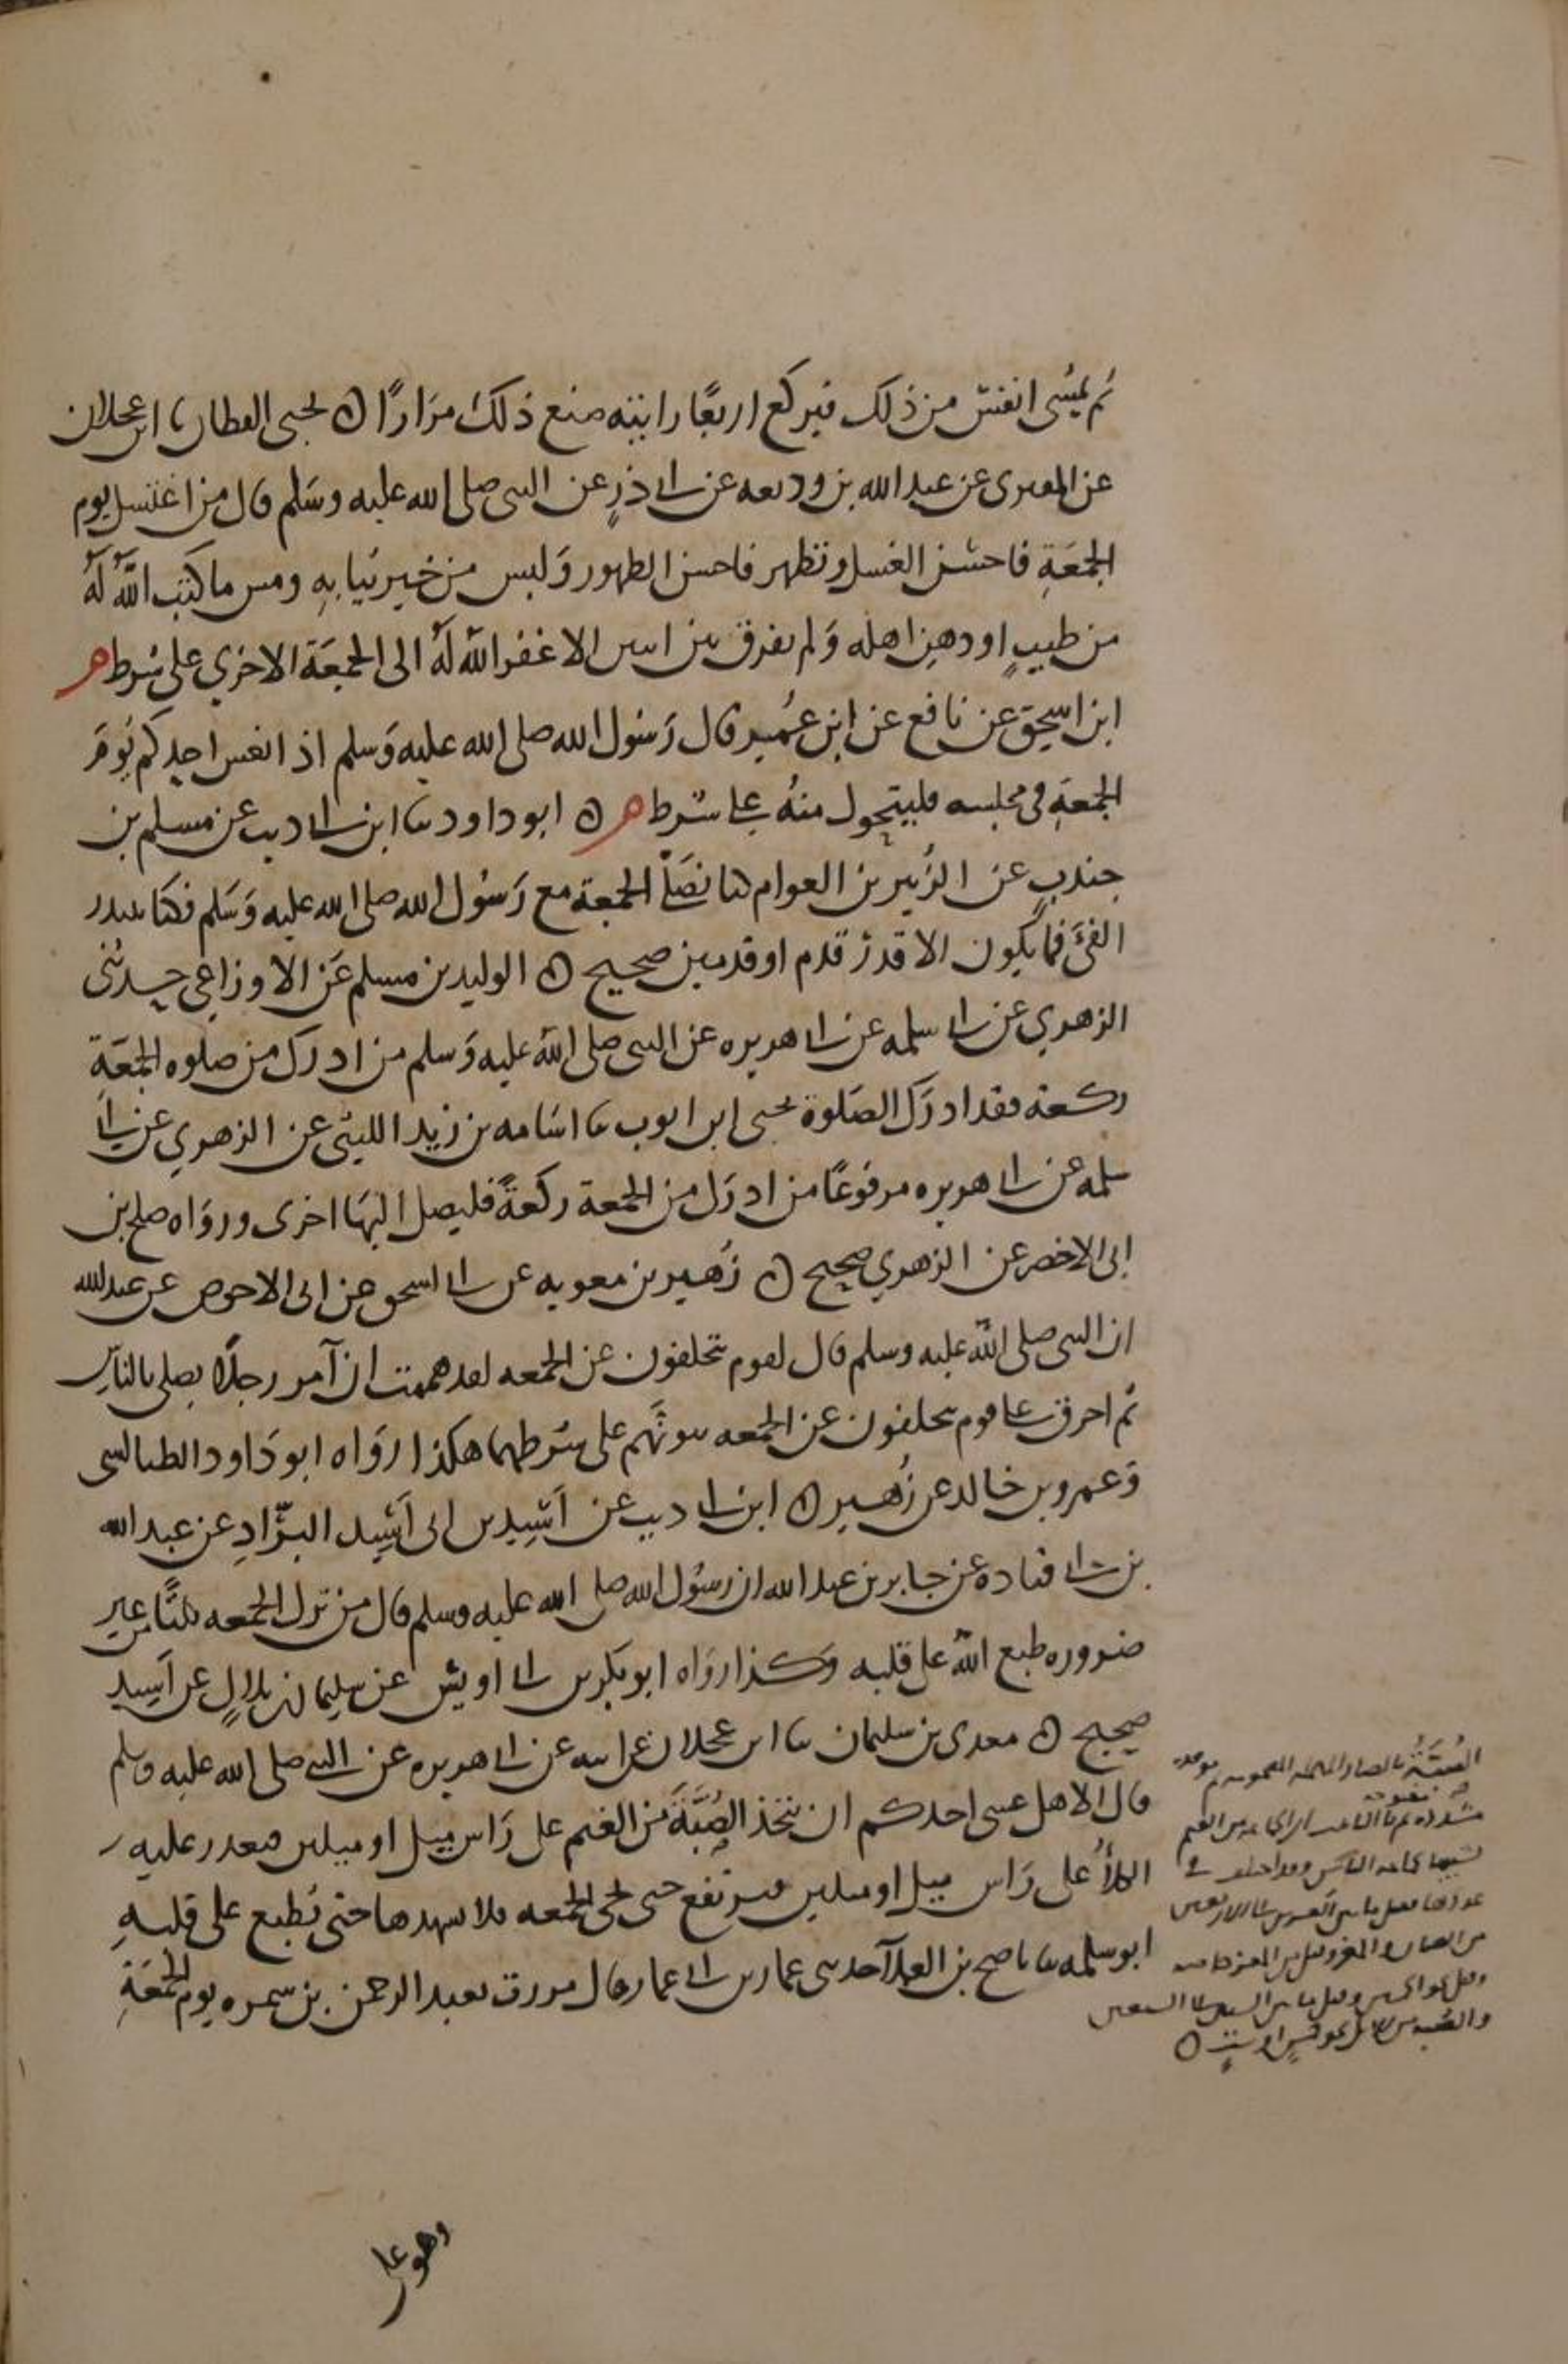 ثم يمشى انفس من ذلك فيركع اربعًا رايته صنع ذلك مرارًا ه يحيى القطان ثنا ابن عجلان
عن المقبرى عن عبد الله بن وديعه عن ابى ذرٍ عن النبى صلى الله عليه وسلم قال من اغتسل يوم
الجمعَةِ فاحسن الغسل وتطهر فاحسن الطهور وَلبس من خير ثيابهِ ومس ما كتب اللهُ لهُ
من طيبٍ او دهنِ اهله وَلم يفرق بين اثنين الا غفر الله لهُ الى الجمعَة الاخري على شرط م
ابن اسحق عن نافع عن ابن عُمر قال رَسُول الله صلى الله عليه وَسلم اذا نعس احدكم يَومَ
الجمعَةِ فى مجلسه فليتحول منهُ على شرط م ه ابو داود ثنا ابن ابى ذيب عن مسلم بن
جندبٍ عن الزُبير بن العوام كنا نصَلى الجمعة مع رَسُول الله صلى الله عليه وَسَلم فكنا نبتدر
الفئَ فما يكون الا قدرُ قدم او قدمين صحيح ه الوليد بن مسلم عَن الاوزاعي حدثنى
الزهري عن ابى سلمه عن ابى هريره عن النبى صلى الله عليه وَسلم من ادرك من صلوه الجمعَةِ
ركعة فقد ادرَك الصَلوة يحيى ابن ايوب ثنا اسَامه بن زيد الليثى عن الزهري عن ابى
سلمه عن ابى هريره مرفوعًا من ادرَك من الجمعة ركعةً فليصل اليهَا اخرى وروَاه صلح بن
ابى الاخضر عن الزهري صحيح ه زُهير بن معويه عن ابى اسحق عن ابى الاحوص عن عبد الله
ان النبى صلى الله عليه وسلم قال لقوم يتخلفون عن الجمعه لقد هممت ان آمر رجلًا يصلى بالناس
ثم احرق على قوم يتخلفون عن الجمعه بيوتَهم على شرطهما هكذا روَاه ابو دَاود الطيالسى
وَعمرو بن خالد عن زُهير ه ابن ابى ذيب عن اَسِيد بن ابى اَسِيد البرّادِ عن عبد الله
بن ابى قتاده عن جابر بن عبد الله ان رسُول الله صلى الله عليه وسلم قال من ترك الجمعه ثلثًا من غير
ضروره طبع اللهُ على قلبه وَكذا روَاه ابو بكر بن ابى اويس عن سليمان بن بلالٍ عن اَسِيد
صحيح ه معدى بن سليمان ثنا ابن عجلان عن ابيه عن ابى هريره عن النبى صلى الله عليه وسلم
قال الا هل عسى احدكم ان يتخذ الصُبَّةَ من الغنم على رَاس ميل او ميلين فيتعذر عليه
الكلأُ على رَاس ميل او ميلين فيرتفع حتى تجى الجمعه فلا يشهدها حتى يُطبع على قلبهِ
ابو سلمه ثنا ناصح بن العلآ حدثنى عمار بن ابى عمار قال مررت بعبد الرحمن بن سمره يوم الجمعَةِ
الصُبَّةُ بالصاد المهمله المضمومه ثم موحده
مشدده مفتوحه ثم تا التانيث اى الجماعه من الغنم
تشبيها بجماعه الناس وقد اختلف فى
عددها فقيل ما بين العشرين الى الاربعين
من الضان والمعز وقيل من المعز خاصه
وقيل نحو الخمسين وقيل ما بين الستين الى السبعين
والصبه من الابل نحو خمسٍ او ستٍ ه
وهو على